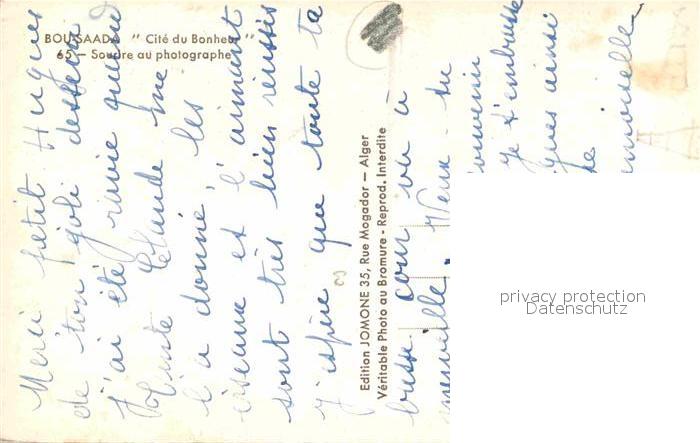 BOU-SAADA " Cité du Bonheur "
65 — Sourire au photographe
Merci petit Hugues
de ton joli dessein
j'ai été ravie quand
Claude me
l'a donné, les
oiseaux et l'aimant
sont très bien réussis
j'espère que toute ta
Edition JOMONE 35, Rue Mogador — Alger
Véritable Photo au Bromure - Reprod. Interdite
va à
merveille. Veux-tu
je t'embrasse
ainsi
privacy protection
Datenschutz